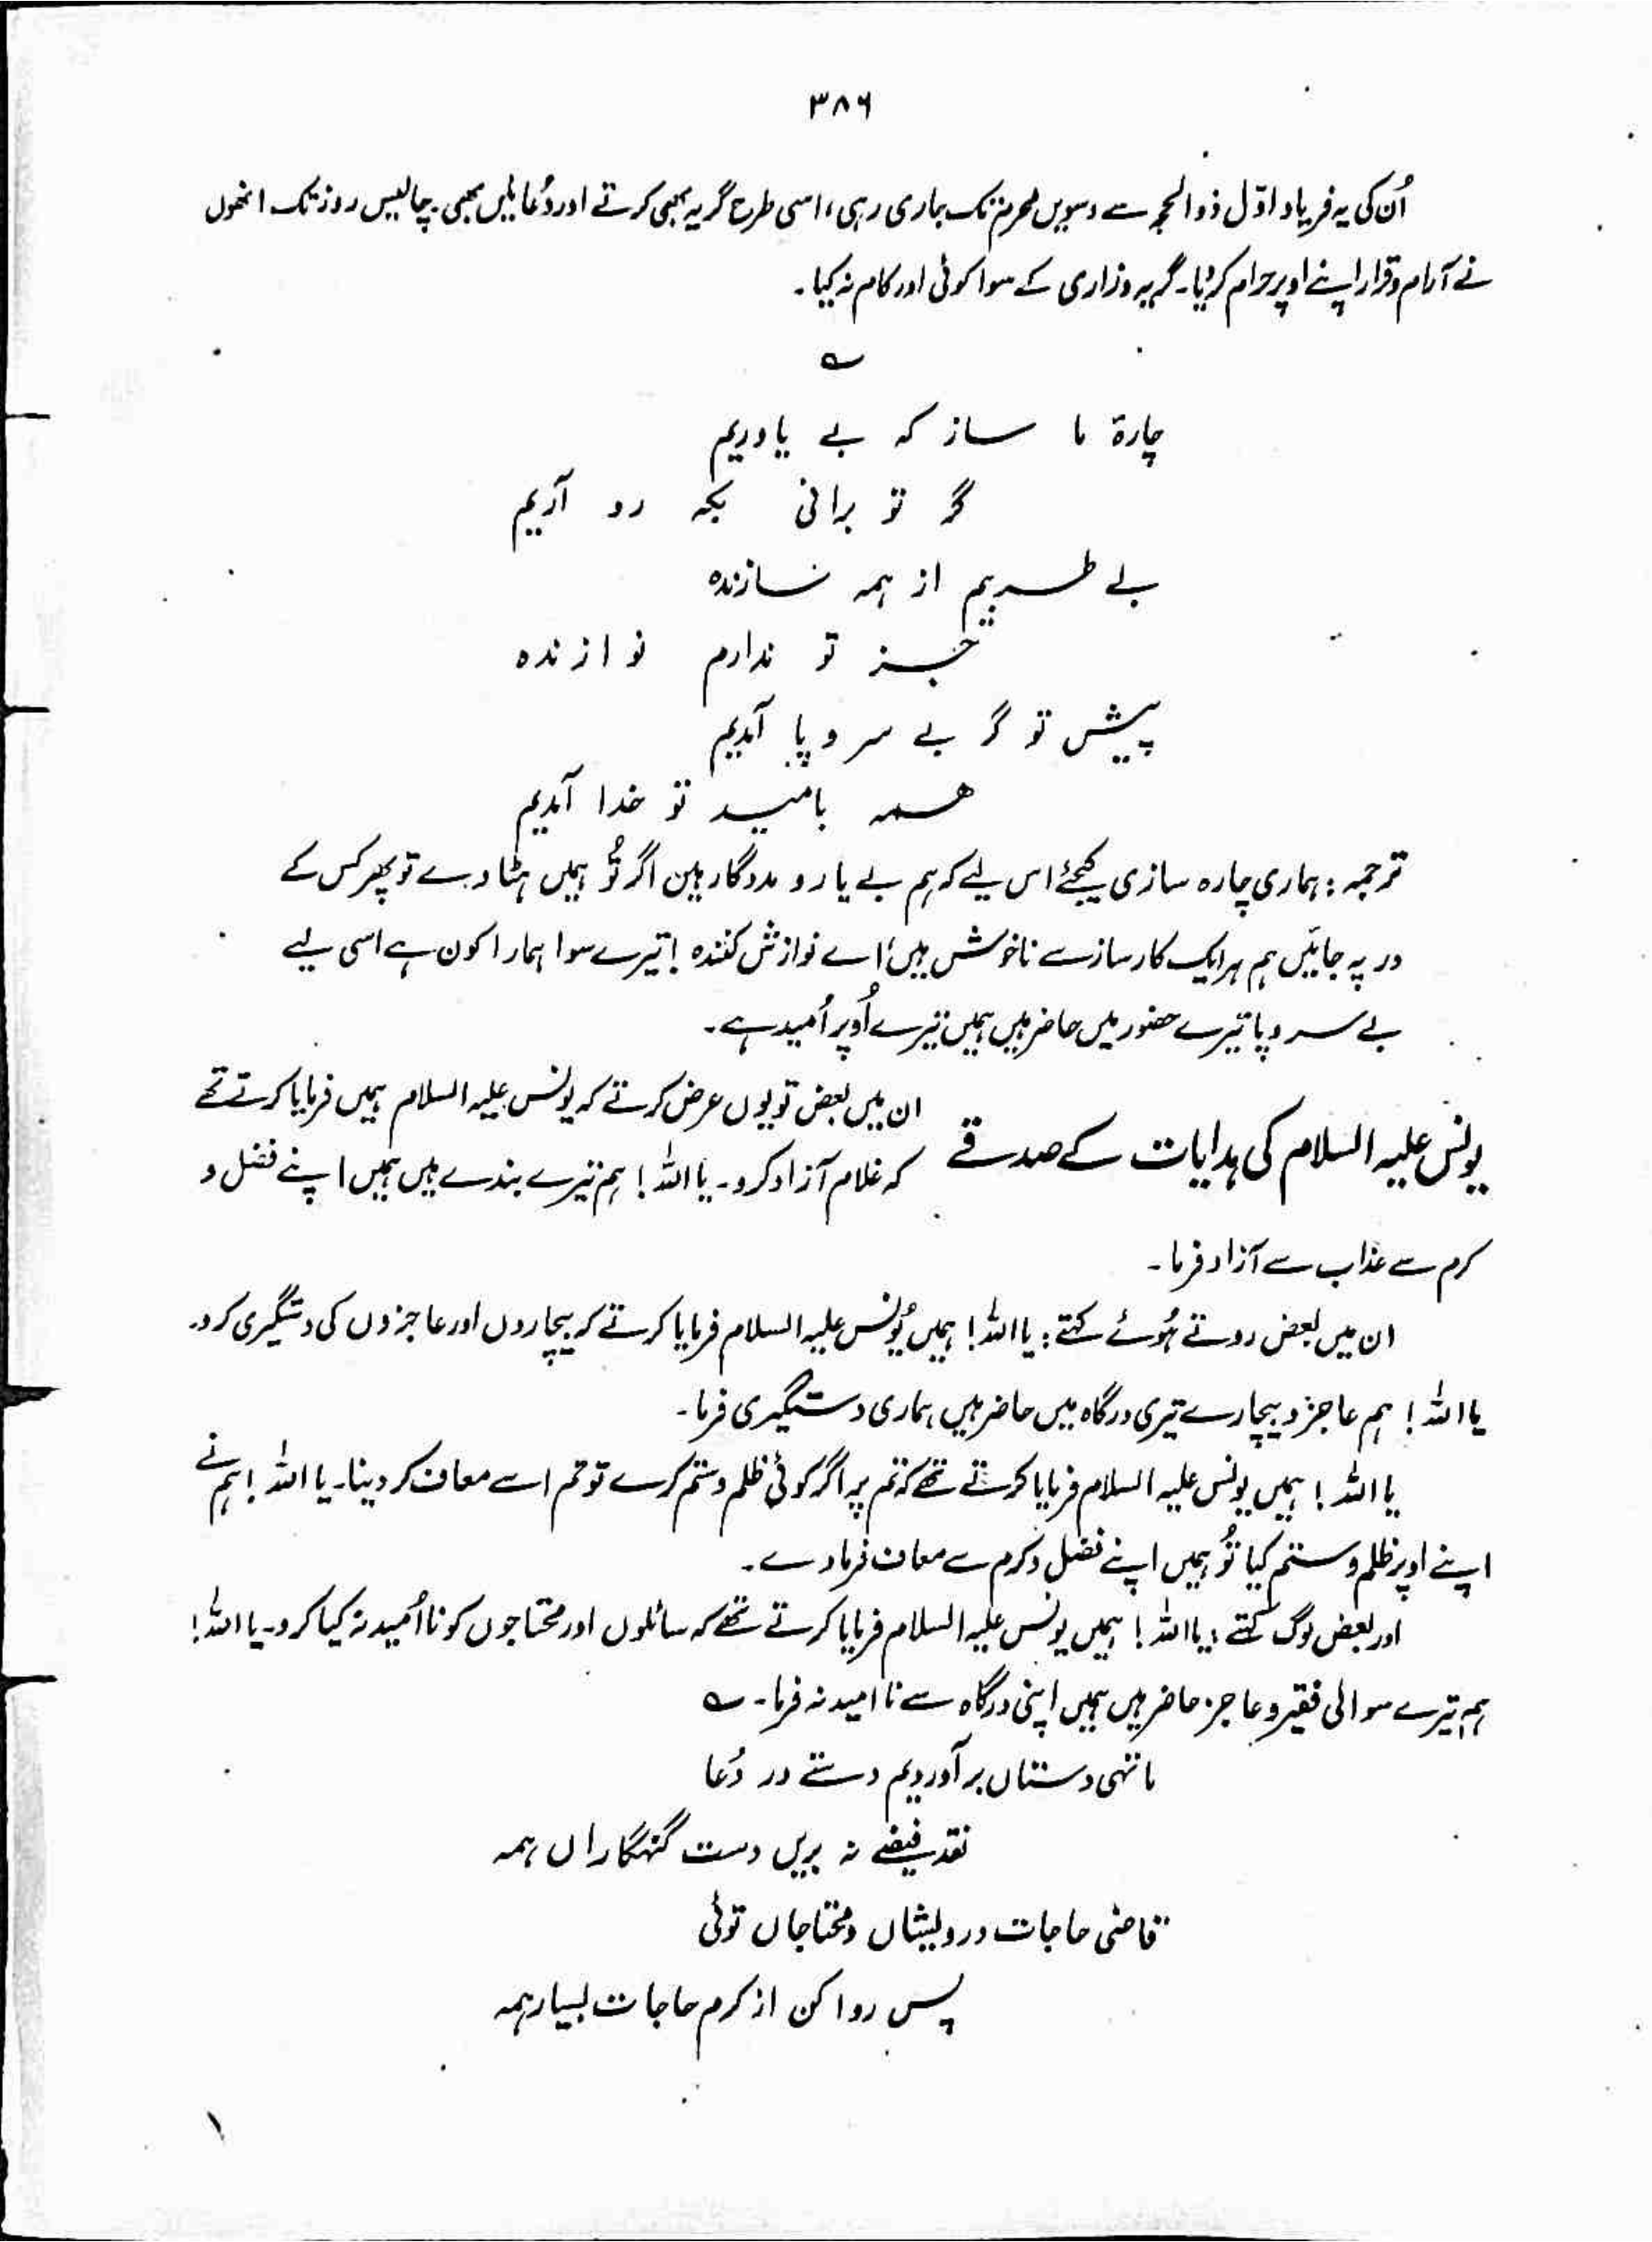 ۳۸۶
اُن کی یہ فریاد اوّل ذوالحجہ سے دسویں محرم تک جاری رہی، اسی طرح گریہ بھی کرتے اور دُعائیں بھی۔ چالیس روز تک انھوں
نے آرام و قرار اپنے اوپر حرام کر دیا۔ گریہ و زاری کے سوا کوئی اور کام نہ کیا۔
؎
چارۂ ما ساز کہ بے یاوریم
گر تو برانی بکہ رو آریم
بے طربیم از ہمہ سازندہ
جز تو ندارم نوازندہ
پیش تو گر بے سر و پا آمدیم
ہمہ بامید تو خدا آمدیم
ترجمہ: ہماری چارہ سازی کیجئے اس لیے کہ ہم بے یار و مددگار ہیں اگر تُو ہمیں ہٹا دے تو پھر کس کے
در پہ جائیں ہم ہر ایک کارساز سے ناخوش ہیں اے نوازش کنندہ! تیرے سوا ہمارا کون ہے اسی لیے
بے سر و پا تیرے حضور میں حاضر ہیں ہمیں تیرے اُوپر اُمید ہے۔
یونس علیہ السلام کی ہدایات کے صدقے
ان میں بعض تو یوں عرض کرتے کہ یونس علیہ السلام ہمیں فرمایا کرتے تھے
کہ غلام آزاد کرو۔ یا اللہ! ہم تیرے بندے ہیں ہمیں اپنے فضل و
کرم سے عذاب سے آزاد فرما۔
ان میں بعض روتے ہُوئے کہتے: یا اللہ! ہمیں یُونس علیہ السلام فرمایا کرتے کہ بیچاروں اور عاجزوں کی دستگیری کرو۔
یا اللہ! ہم عاجز و بیچارے تیری درگاہ میں حاضر ہیں ہماری دستگیری فرما۔
یا اللہ! ہمیں یونس علیہ السلام فرمایا کرتے تھے کہ تم پر اگر کوئی ظلم و ستم کرے تو تم اسے معاف کر دینا۔ یا اللہ! ہم نے
اپنے اوپر ظلم و ستم کیا تُو ہمیں اپنے فضل و کرم سے معاف فرما دے۔
اور بعض لوگ کہتے: یا اللہ! ہمیں یونس علیہ السلام فرمایا کرتے تھے کہ سائلوں اور محتاجوں کو نا اُمید نہ کیا کرو۔ یا اللہ!
ہم تیرے سوالی فقیر و عاجز حاضر ہیں ہمیں اپنی درگاہ سے نا امید نہ فرما۔ ؎
ما تہی دستاں برآوردیم دستے در دُعا
نقد فیضے نہ بریں دست گنہگاراں ہمہ
قاضی حاجات درویشاں و محتاجاں توئی
پس روا کن از کرم حاجات بسیار ہمہ